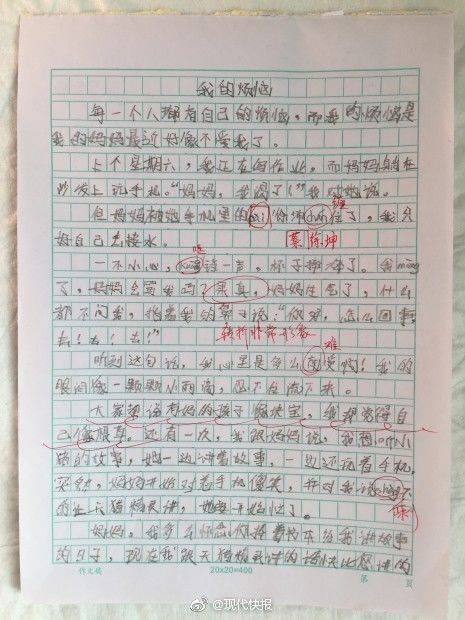 我的烦恼
每一个人都有自己的烦恼,而我的烦恼是
我的妈妈最近好像不爱我了。
上个星期六,我正在写作业,而妈妈躺在
沙发上玩手机。“妈妈,我渴了!”我对她说。
但妈妈被她手机里的
缠
住了,我只
好自己去接水。
蔡徐坤
一不小心,
一声,杯子摔碎了。我
máng
了,妈妈会骂我吗?
果真,妈妈生气了,什么
都不问我,指着我的鼻子说:“你呀,怎么回事,
去!去!去!”
转折非常形象
难
听到这句话,我心里是多么
受啊!我的
眼泪像一颗颗小雨滴,忍不住流下来。
大家都说有妈的孩子像块宝,我却觉得自
己像根草。还有一次,我跟妈妈说,我想
听小
猪的故事,她一边讲着故事,一边还玩着手机,
突然,妈妈开始对着手机傻笑,并对我说
你
的让天猫精灵讲,她
开始忙了。
妈妈,我多么怀念你捧着书本给我讲故事
的日子,现在我跟天猫精灵讲的话快比您讲的
作文稿
20×20=400
第 页
@现代快报